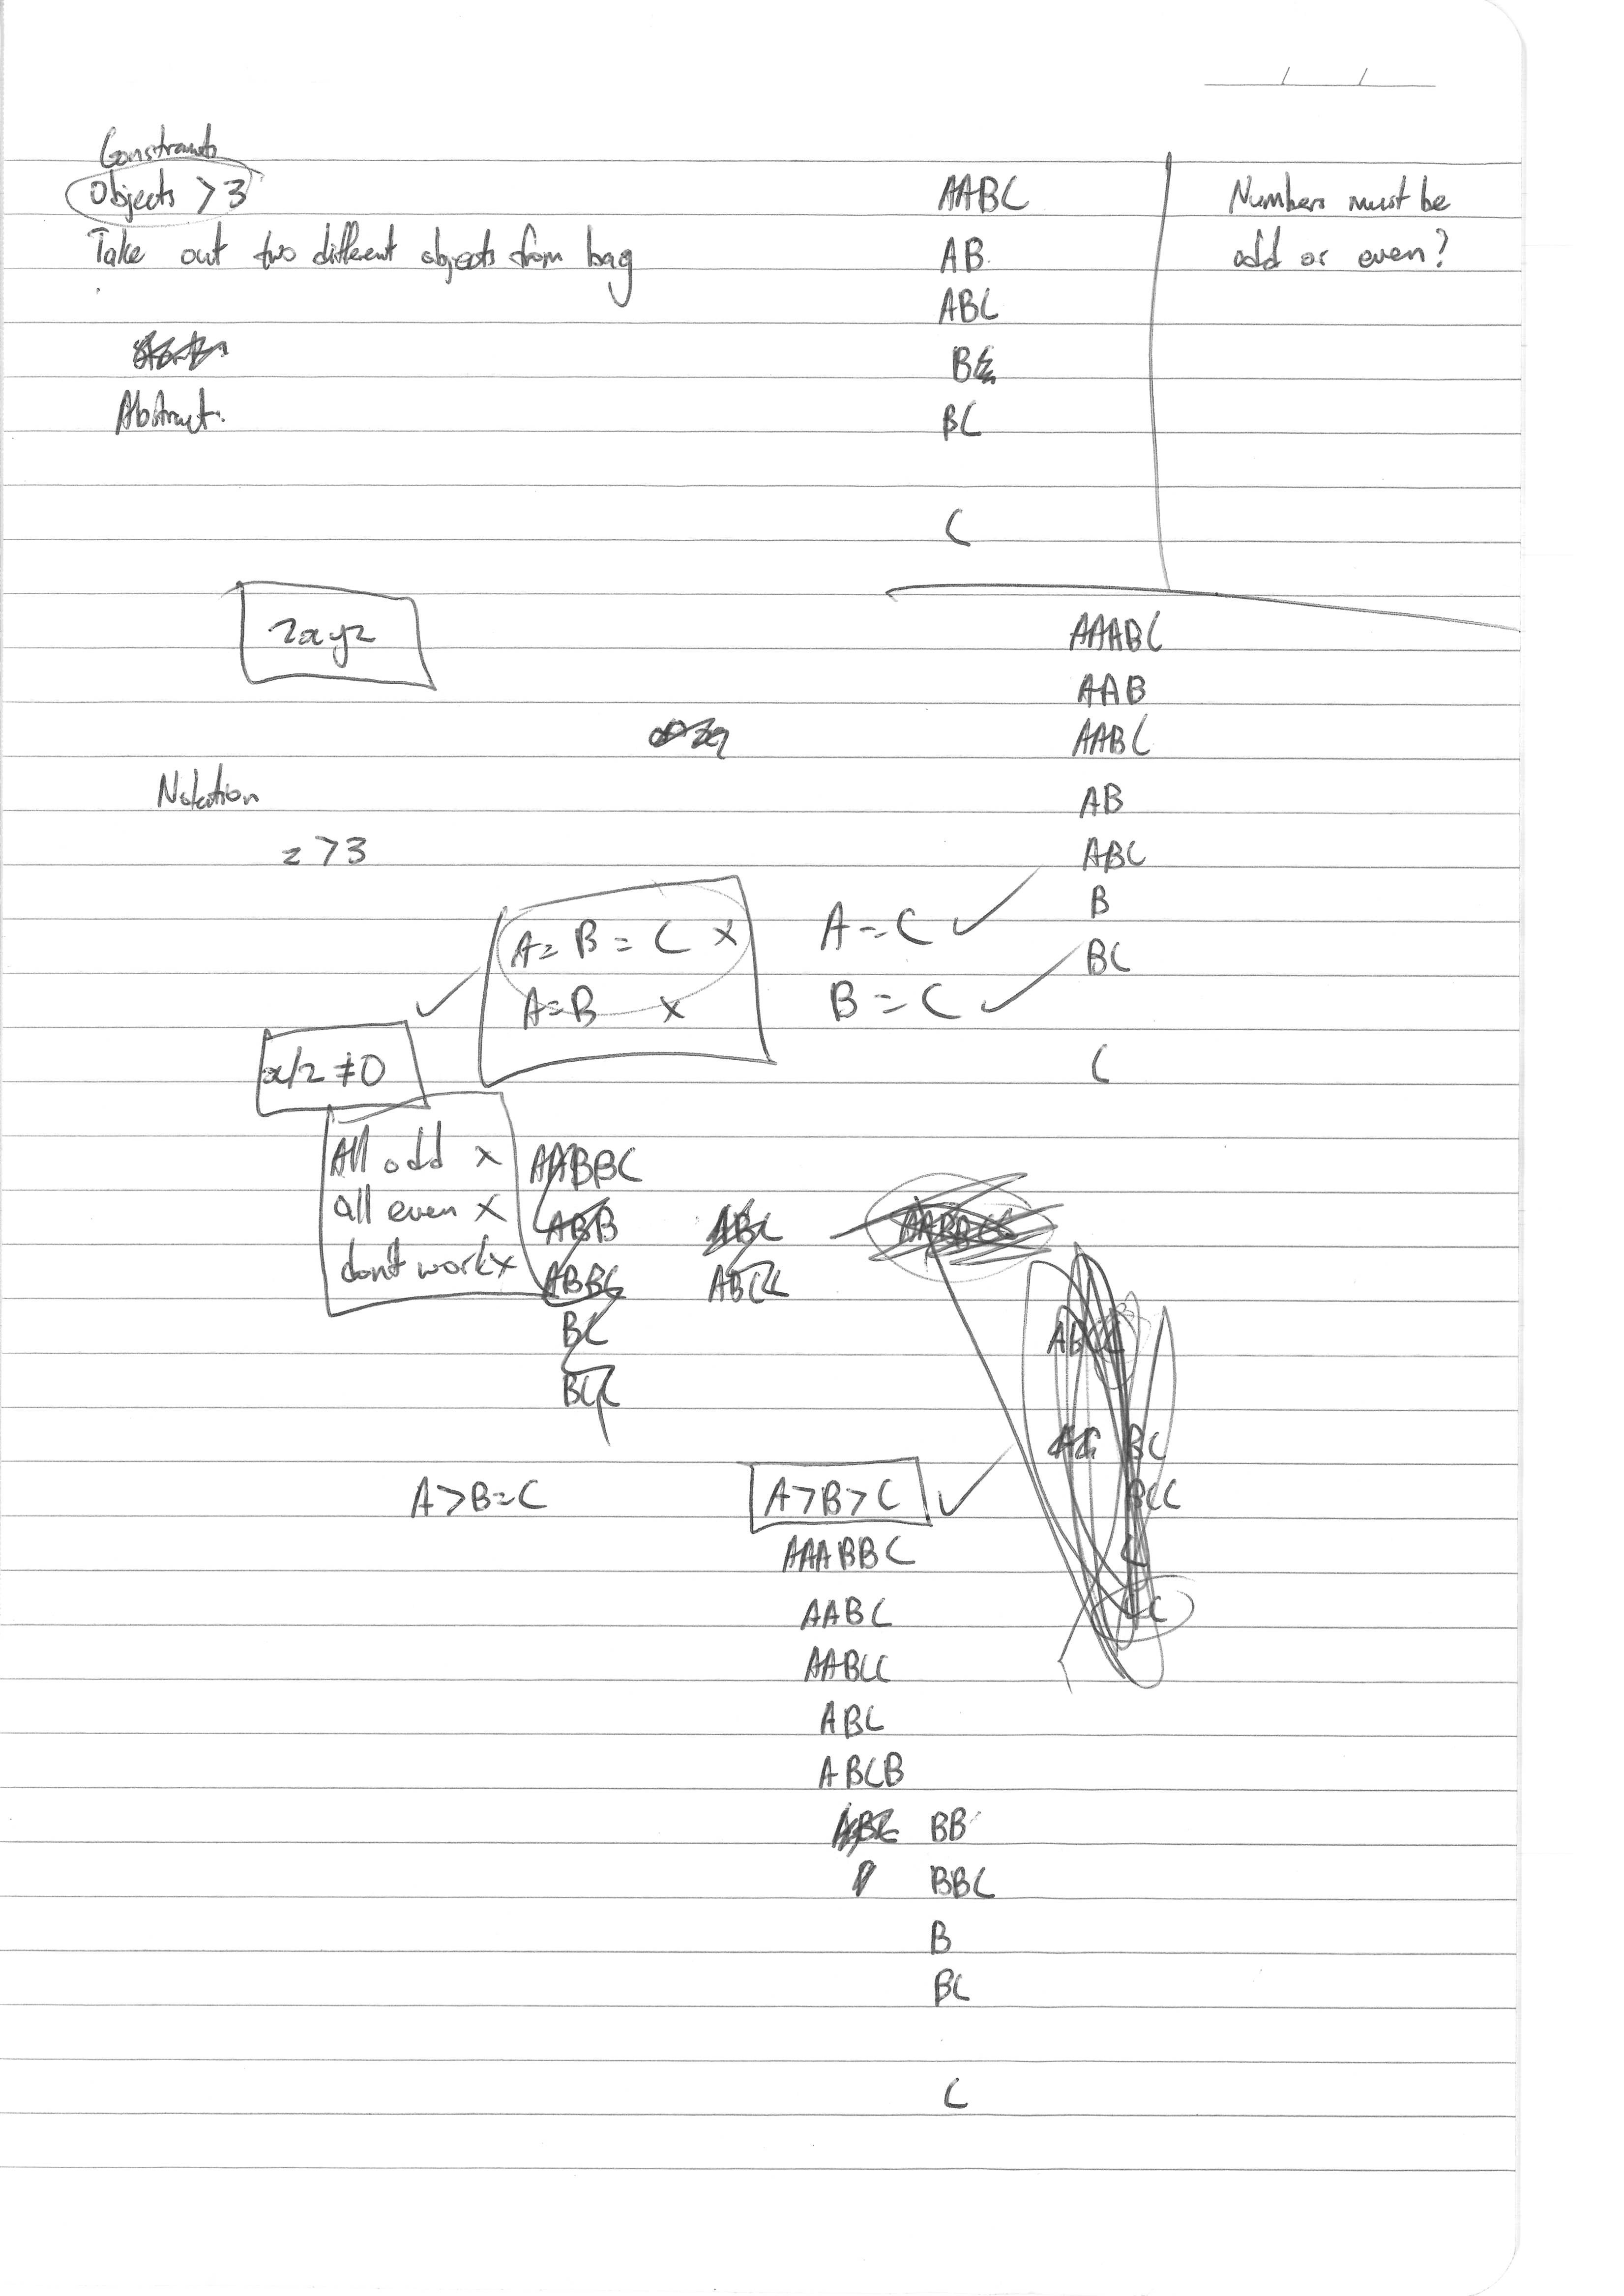 Constraints
Objects > 3
Take out two different objects from bag
Abstract.
AABC
AB
ABC
B
BC
C
Numbers must be
odd or even?
AAABC
AAB
AABC
AB
ABC
B
BC
C
Notation
z > 3
A = B = C x
A = B x
A = C ✓
B = C ✓
✓
x/2 ≠ 0
All odd x
all even x
dont work x
AABBC
ABB
ABBC
BC
BCC
ABC
ABCC
ABCC
BC
BCC
C
CC
A > B = C
A > B > C ✓
AAABBC
AABC
AABCC
ABC
ABCB
BB
BBC
B
BC
C